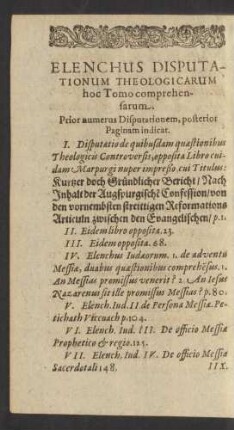 ELENCHUS DISPUTA-
TIONUM THEOLOGICARUM
hoc Tomo comprehen-
sarum.
Prior numerus Disputationem, posterior
Paginam indicat.
I. Disputatio de quibusdam quæstionibus
Theologicis Controversis, opposita Libro cui-
dam Marpurgi nuper impresso, cui Titulus:
Kurtzer doch Gründlicher Bericht / Nach
Inhalt der Augspurgisch? Confession / von
den vornembsten streittigen Reformations
Articuln zwischen den Evangelischen / p. 1.
II. Eidem libro opposita. 23.
III. Eidem opposita. 68.
IV. Elenchus Iudæorum. 1. de adventu
Messiæ, duabus quæstionibus comprehẽsus. 1.
An Messias promissus venerit? 2. An Iesus
Nazarenus sit ille promissus Messias? p. 80.
V. Elench. Iud. II de Persona Messiæ. Pe-
tichath Viccuach p. 104.
VI. Elench. Iud. III. De officio Messiæ
Prophetico & regio. 125.
VII. Elench. Iud. IV. De officio Messiæ
Sacerdotali 148.
IIX.